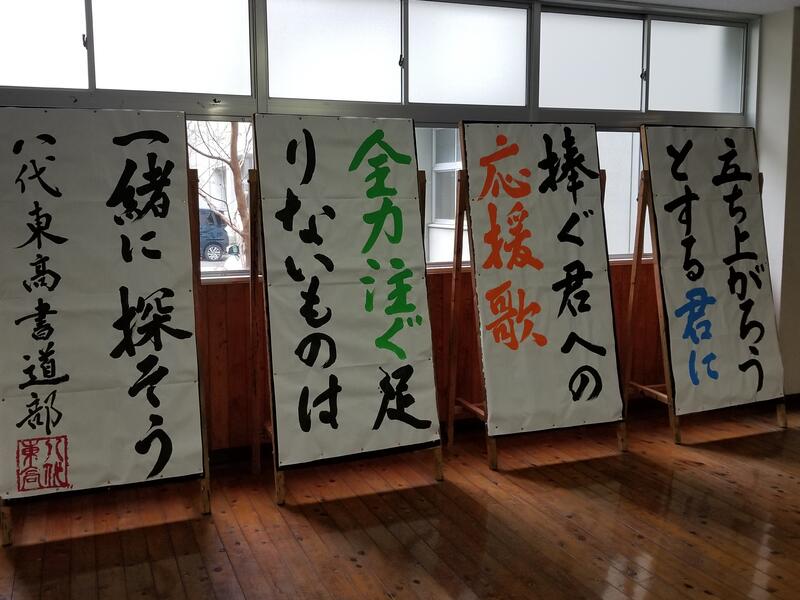 立ち上がろう
とする君に
捧ぐ君への
応援歌
全力注ぐ足
りないものは
一緒に探そう
八代東高書道部
八代
東高